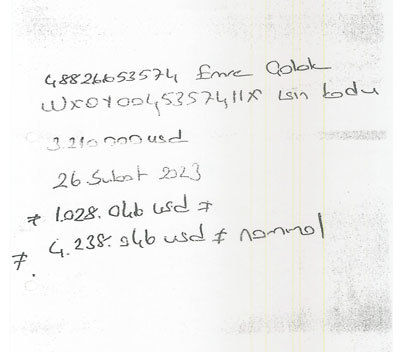 48826653574 Emre Çolak
WX0Y004535741IX isin kodu
3.210.000 usd
26 Subat 2023
≠ 1.028.046 usd ≠
≠ 4.238.046 usd ≠ nominal